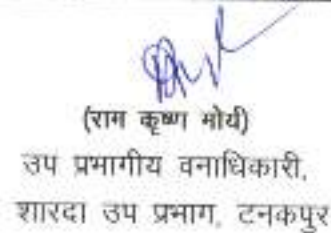 (राम कृष्ण मोर्य)
उप प्रभागीय वनाधिकारी,
शारदा उप प्रभाग, टनकपुर